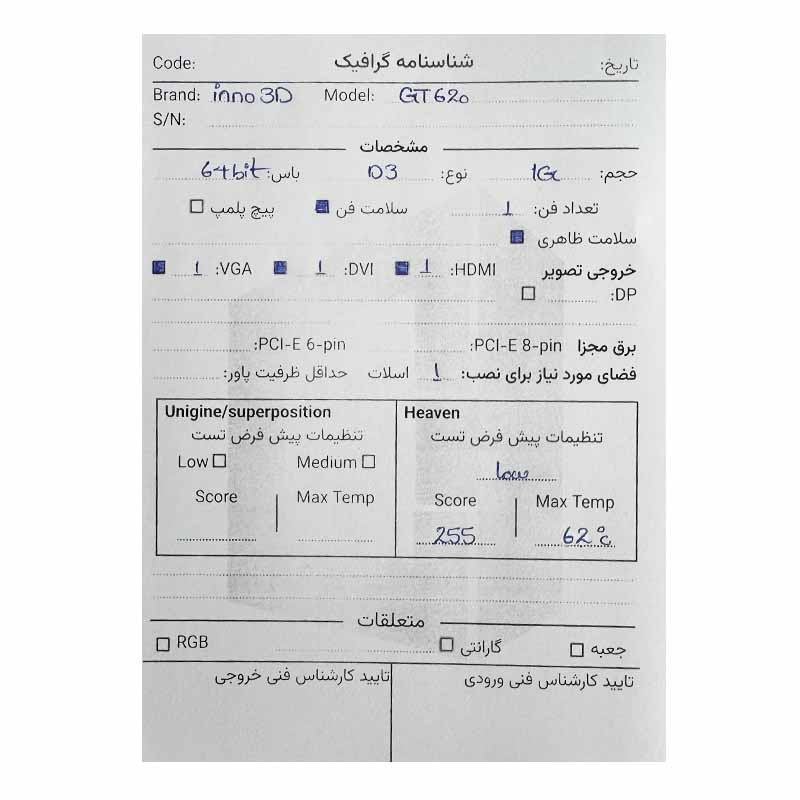 Code: شناسنامه گرافیک تاریخ:
Brand: inno3D Model: GT620
S/N:
مشخصات
حجم: 1G نوع: D3 باس: 64bit
تعداد فن: 1 سلامت فن پیچ پلمپ
سلامت ظاهری
خروجی تصویر HDMI: 1 DVI: 1 VGA: 1
DP:
برق مجزا PCI-E 8-pin: PCI-E 6-pin:
فضای مورد نیاز برای نصب: 1 اسلات حداقل ظرفیت پاور:
Unigine/superposition
تنظیمات پیش فرض تست
Low Medium
Score Max Temp
Heaven
تنظیمات پیش فرض تست
low
Score Max Temp
255 62°c
متعلقات
جعبه گارانتی RGB
تایید کارشناس فنی ورودی تایید کارشناس فنی خروجی